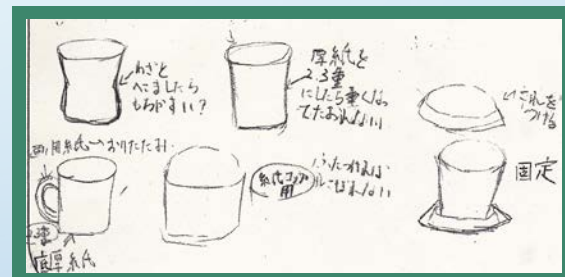 わざと
へこましたら
もちやすい?
厚紙を
2.3重
にしたら重くなっ
てたおれない
これを
つける
画用紙→おりたたむ
紙コップ
用
ふたつければ
こぼれない
固定
2重
底厚紙